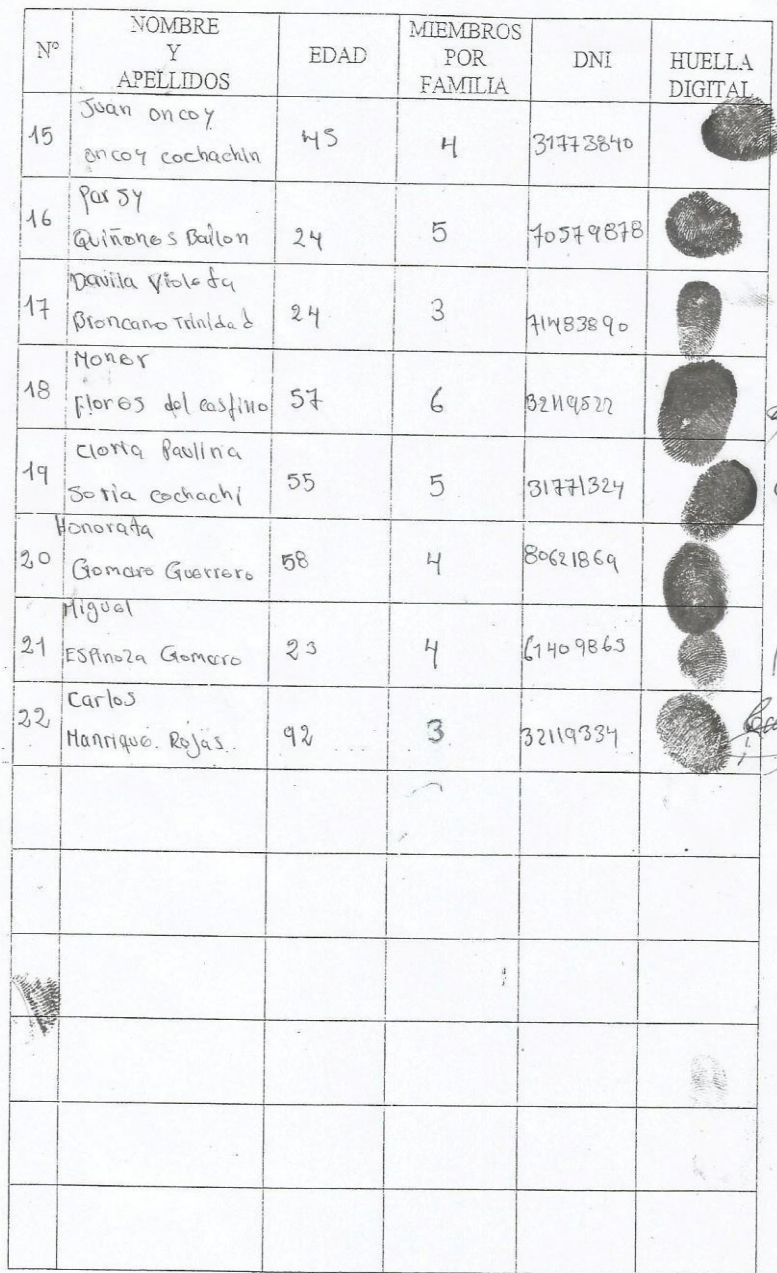 N° NOMBRE Y APELLIDOS EDAD MIEMBROS POR FAMILIA DNI HUELLA DIGITAL
15 Juan oncoy oncoy cochachin 45 4 31773840
16 Parsy Quiñones Bailon 24 5 70579878
17 Davila Violeta Broncano Trinidad 24 3 71483890
18 Moner Flores del castillo 57 6 32119522
19 Cloria Paulina Soria cochachi 55 5 31771324
20 Honorata Gomaro Guerrero 58 4 80621869
21 Miguel ESPinoza Gomero 23 4 61409863
22 Carlos Manrique. Rojas. 92 3 32119334